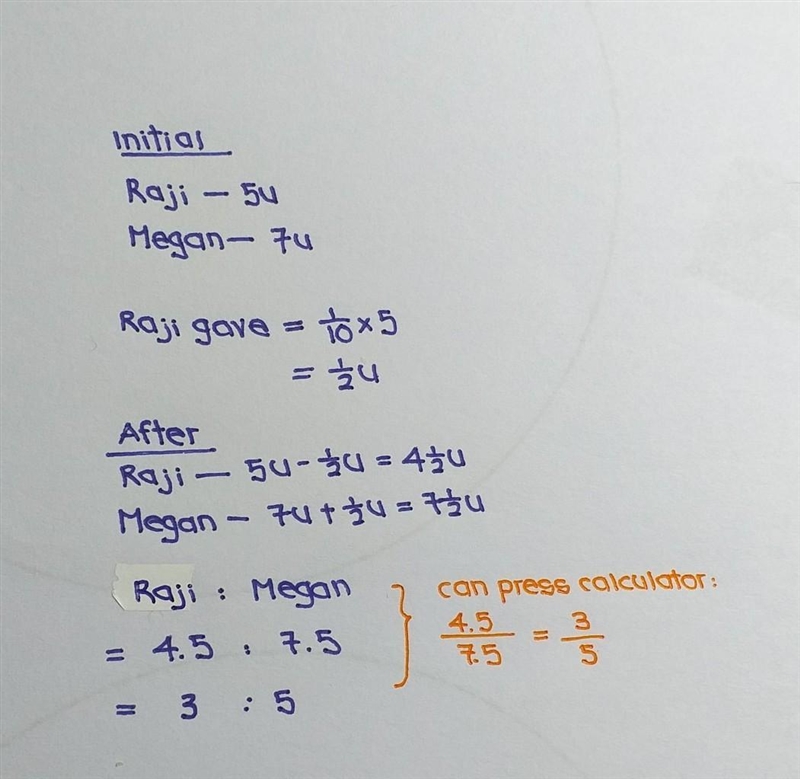 Initial
Raji – 5u
Megan – 7u
Raji gave = 1/10 × 5
= 1/2 u
After
Raji – 5u - 1/2 u = 4 1/2 u
Megan – 7u + 1/2 u = 7 1/2 u
Raji : Megan
= 4.5 : 7.5
= 3 : 5
can press calculator:
4.5/7.5 = 3/5